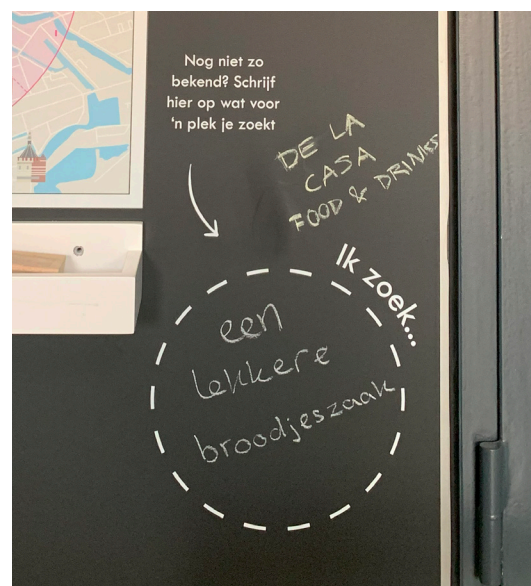 Nog niet zo
bekend? Schrijf
hier op wat voor
'n plek je zoekt
DE LA
CASA
FOOD & DRINKS
Ik zoek...
een
lekkere
broodjeszaak